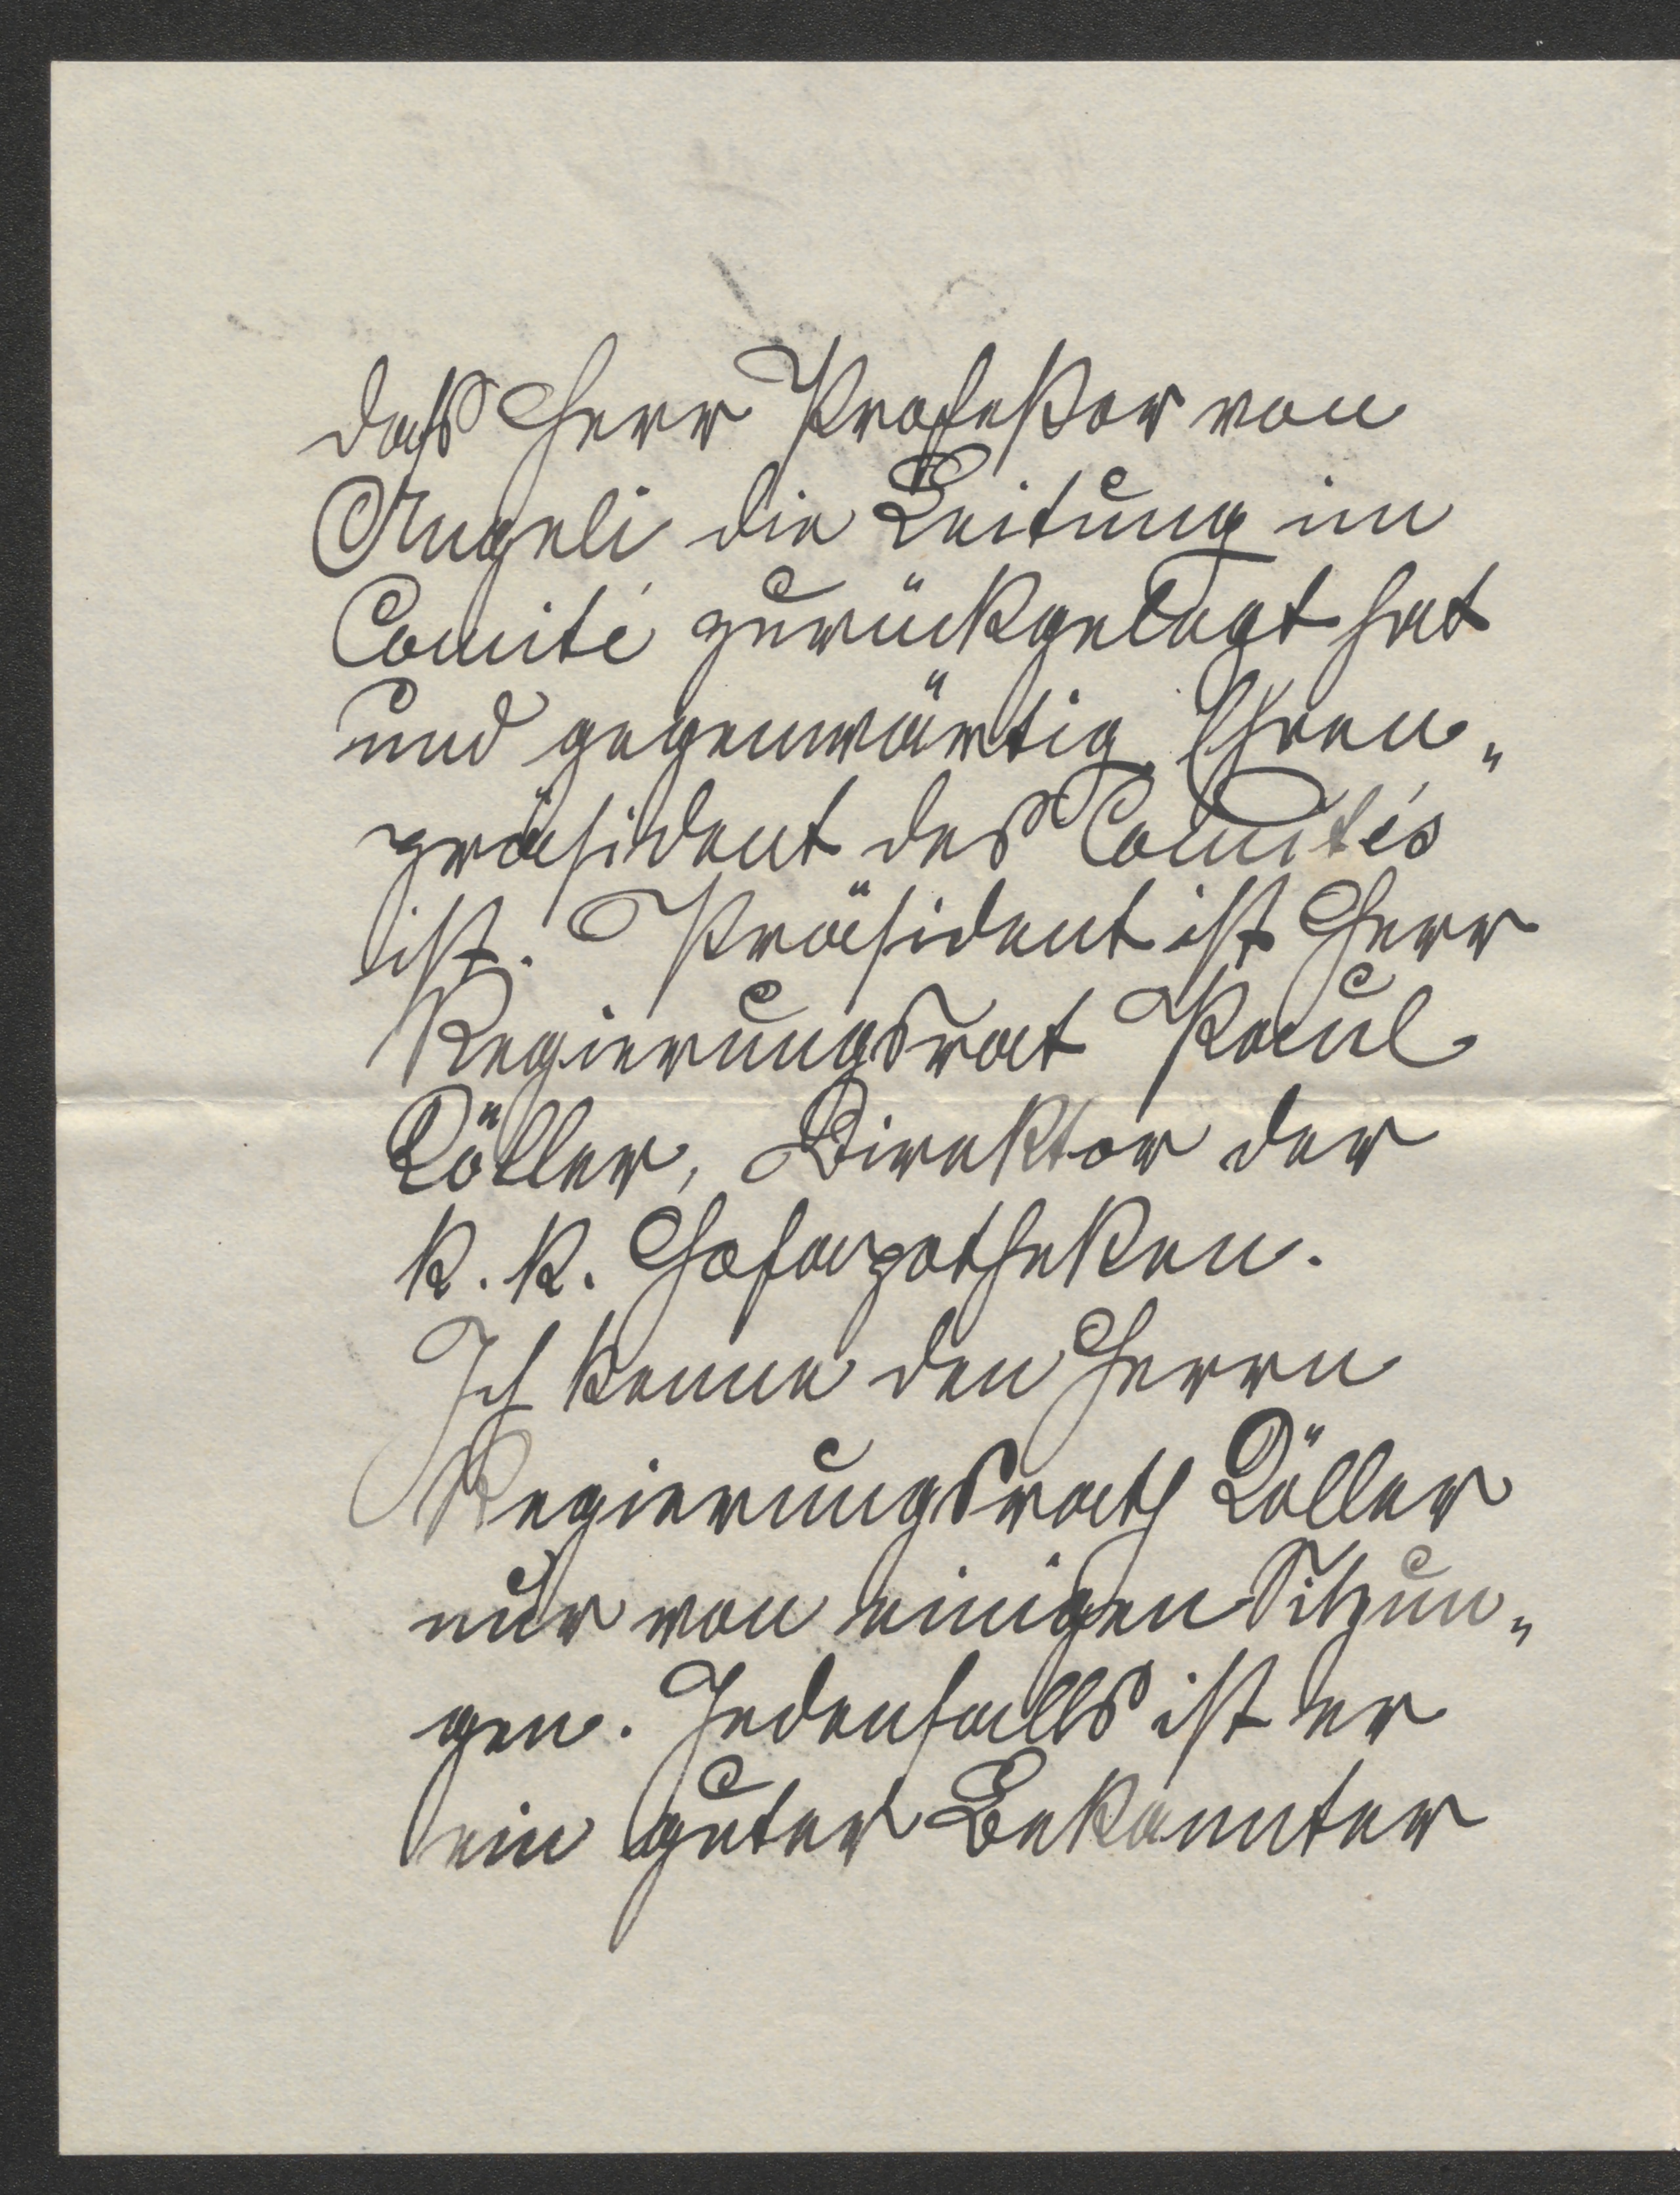 daß Herr Profeßor von
Angeli die Leitung im
Comité zurückgelegt hat
und gegenwärtig Ehren„
präsident des Comités
ist. Präsident ist Herr
Regierungsrat Paul
Löller, Direktor der
k. k. Hofapotheken.
Ich kenne den Herrn
Regierungsrath Löller
nur von einigen Sitzun„
gen. Jedenfalls ist er
ein guter Bekannter